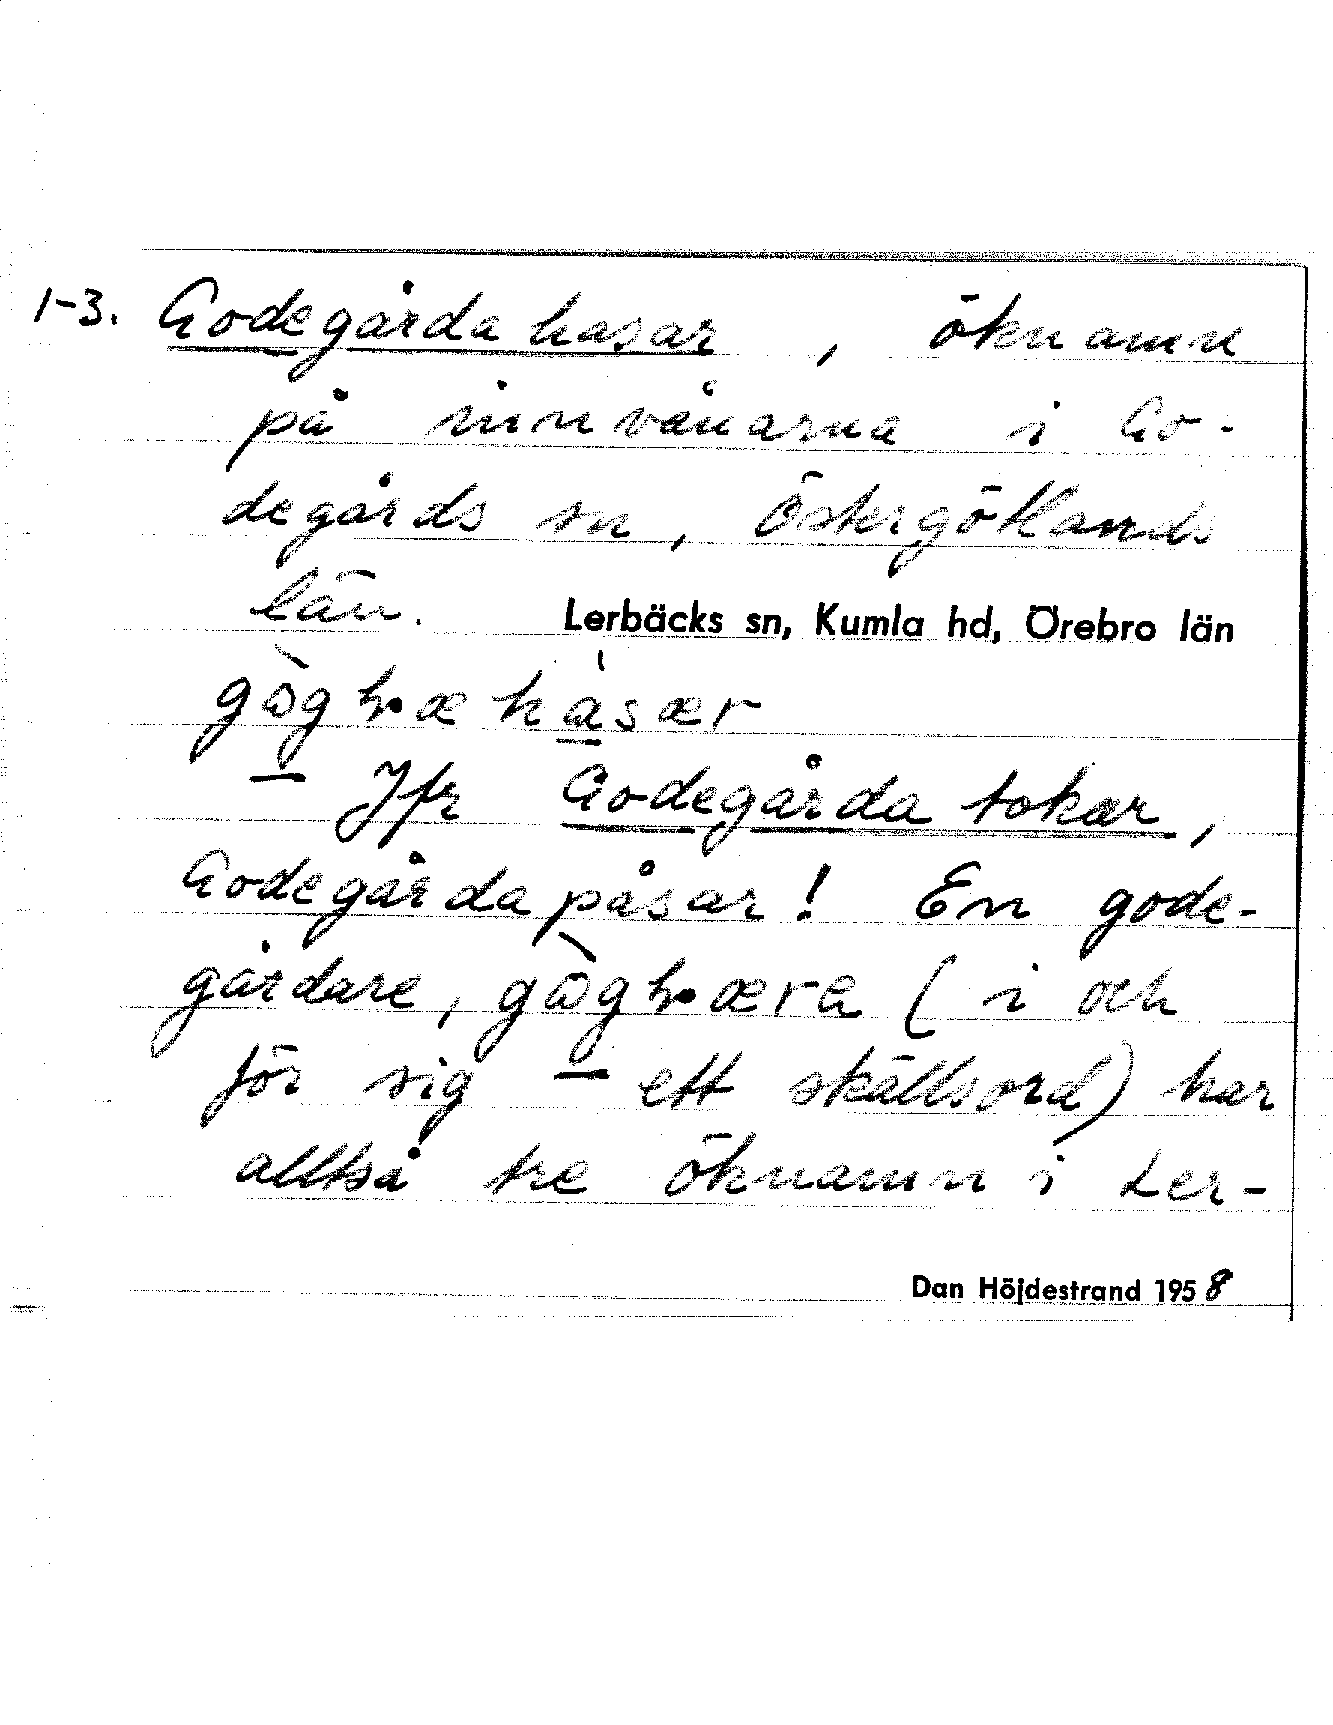 1-3. Godegårda hasar, öknamn
på innvånarna i Go-
degårds sn, Östergötlands
län. Lerbäcks sn, Kumla hd, Örebro län
Jfr Godegårda tokar,
Godegårdapåsar! En gode-
gårdare, (i och
för sig ett skällsord) har
alltså tre öknamn i Ler-
Dan Höjdestrand 1958